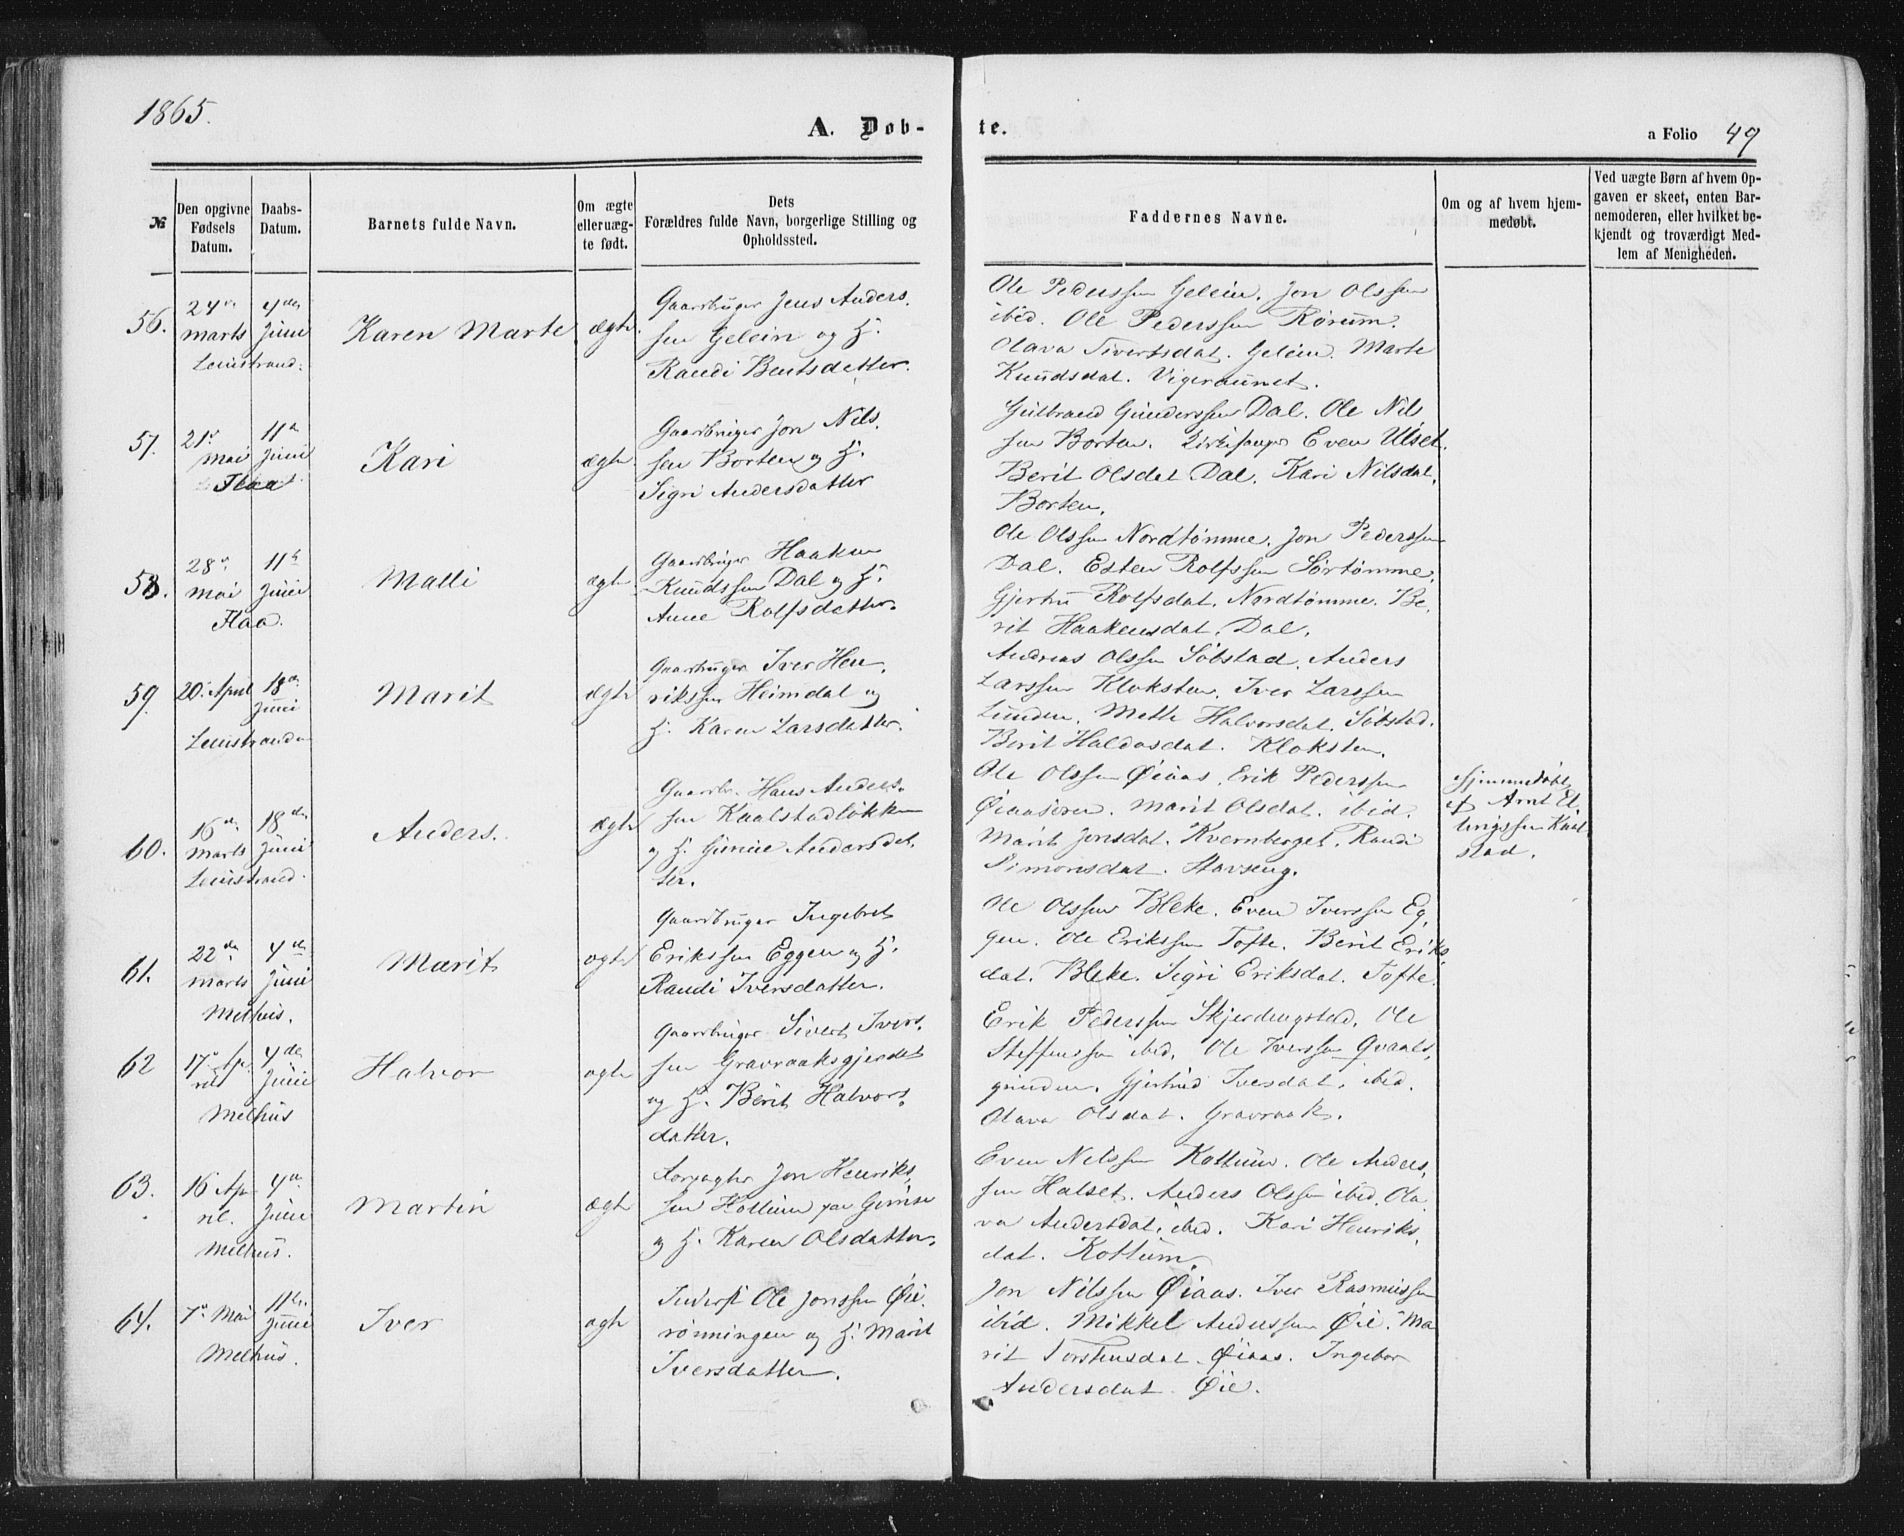 1865.
A. Døb-
te.
a Folio 49
№
Den opgivne Fødsels Datum.
Daabs-Datum.
Barnets fulde Navn.
Om ægte eller uægte født.
Dets Forældres fulde Navn, borgerlige Stilling og Opholdssted.
Faddernes Navne.
Om og af hvem hjemmedøbt.
Ved uægte Børn af hvem Opgaven er skeet, enten Barnemoderen, eller hvilket bekjendt og troværdigt Medlem af Menigheden.
56.
24
marts
Leinstrand.
4de
Juni
Karen Marte
ægte
Gaardbruger Jens Anders,
sen Gelein og H.
Randi Bentsdatter.
Ole Pederssen Gelein. Jon Olssen
ibid. Ole Pederssen Rørum.
Olava Sivertsdat. Gelein. Marte
Knudsdat. Vigeraunet.
57.
21
mai
Flaa
11
Juni
Kari
ægte
Gaardbruger Jon Nils,
sen Borten og H.
Sigri Andersdatter
Gulbrand Gunderssen Dal. Ole Nils
sen Borten. Kirkesanger Even Ulset.
Berit Olsdat Dal. Kari Nilsdat,
Borten.
58.
28
mai
Flaa.
11
Juni
Malli
ægte
Gaardbruger Haaken
Knudssen Dal og H.
Anne Rolfsdatter.
Ole Olssen Nordtømme. Jon Pederssen
Dal. Esten Rolfssen Sørtømme.
Gjertru Rolfsdat. Nordtømme. Be,
rit Haakensdat. Dal.
59.
20. April
Leinstranden
18de
Juni
Marit
ægte
Gaardbruger Iver Hen,
rikssen Heimdal og
H. Karen Larsdatter.
Andreas Olssen Søbstad. Anders
Larssen Kloksten. Iver Larssen
Lunden. Mette Halvorsdat. Søbstad.
Berit Haldosdat. Kloksten.
60.
16de
marts
Leinstrand.
18de
Juni
Anders.
ægte
Gaardbr. Hans Anders,
sen Kaalstadløkken
og H. Gunne Andersdat,
ter.
Ole Olssen Øiaas. Erik Pederssen
Øiaaseren. Marit Olsdat. ibid.
Marit Jonsdat. Kvernberget. Randi
Simonsdat. Stavseng.
Hjemmedøbt
af Arnt El,
lingssen Kaal
stad.
61.
22de
marts
Melhus.
4de
Juni
Marit
ægte
Gaardbruger Ingebret
Erikssen Eggen og H.
Randi Iversdatter.
Ole Olssen Bleke. Even Iverssen Eg,
gen. Ole Erikssen Tofte. Berit Eriks
dat. Bleke. Sigri Eriksdat. Tofte.
62
17 Ap,
ril
Melhus
4de
Juni
Halvor
ægte
Gaardbruger Sivert Ivers,
sen Gravraaksgjerdet
og H. Berit Halvors,
datter.
Erik Pederssen Skjerdengstad. Ole
Steffenssen ibid. Ole Iverssen Qvaals,
grinden. Gjertrud Iversdat. ibid.
Olava Olsdat. Gravraak.
63.
16 Ap
ril.
Melhus.
4de
Juni
Martin
ægte
Forpagter Jon Henriks,
sen Kottum paa Gimse
og H. Karen Olsdatter.
Even Nilssen Kottum. Ole Anders,
sen Halset. Anders Olssen ibid. Ola,
va Andersdat. ibid. Kari Henriks,
dat. Kottum.
64.
7 Mai
Melhus.
11te
Juni
Iver
ægte
Inderst Ole Jonssen Øie,
rønningen og H. Marit
Iversdatter.
Jon Nilssen Øiaas. Iver Rasmussen
ibid. Mikkel Anderssen Øie. Ma
rit Torstensdat. Øiaas. Ingebor
Andersdat. Øie.